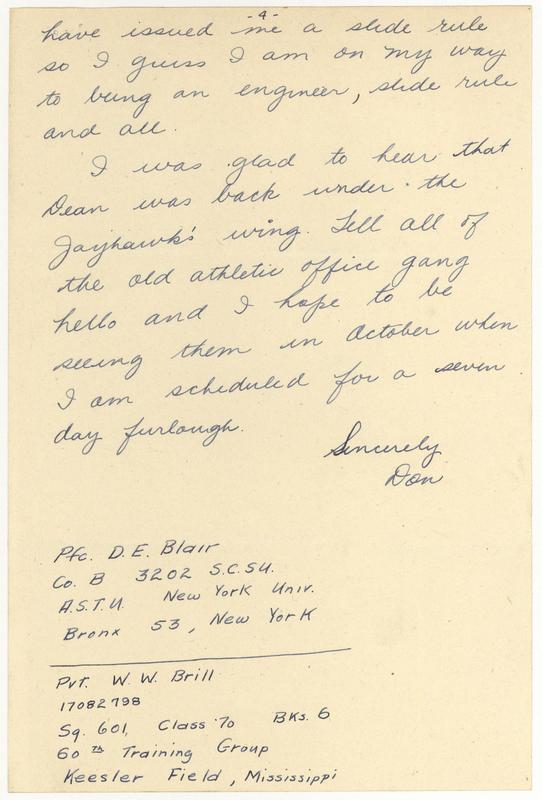 -4-
have issued me a slide rule
so I guess I am on my way
to being an engineer, slide rule
and all.
I was glad to hear that
Dean was back under the
Jayhawk's wing. Tell all of
the old athletic office gang
hello and I hope to be
seeing them in October when
I am scheduled for a seven
day furlough.
Sincerely
Don
Pfc. D.E. Blair
Co. B 3202 S.C.S.U.
A.S.T.U. New York Univ.
Bronx 53, New York
Pvt. W. W. Brill
17082798
Sq. 601, Class 70 Bks. 6
60th Training Group
Keesler Field, Mississippi